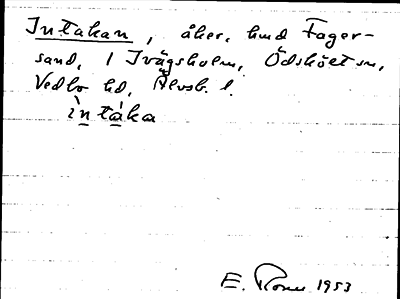 Intakan, åker, hmd Fager-
sand, 1 Ivägsholm, Ödsköets sn,
Vedbo hd, Älvsb. l.
ìntáka
E. 1953